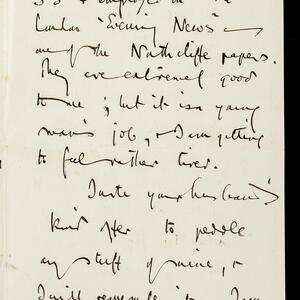 55 & employed on the
London "Evening News" —
one of the Northcliffe papers.
They are extremely good
to me; but it is a young
man's job, & I am getting
to feel rather tired.
I note your husband's
kind offer to peddle
any stuff of mine, &
I will remember it. I am